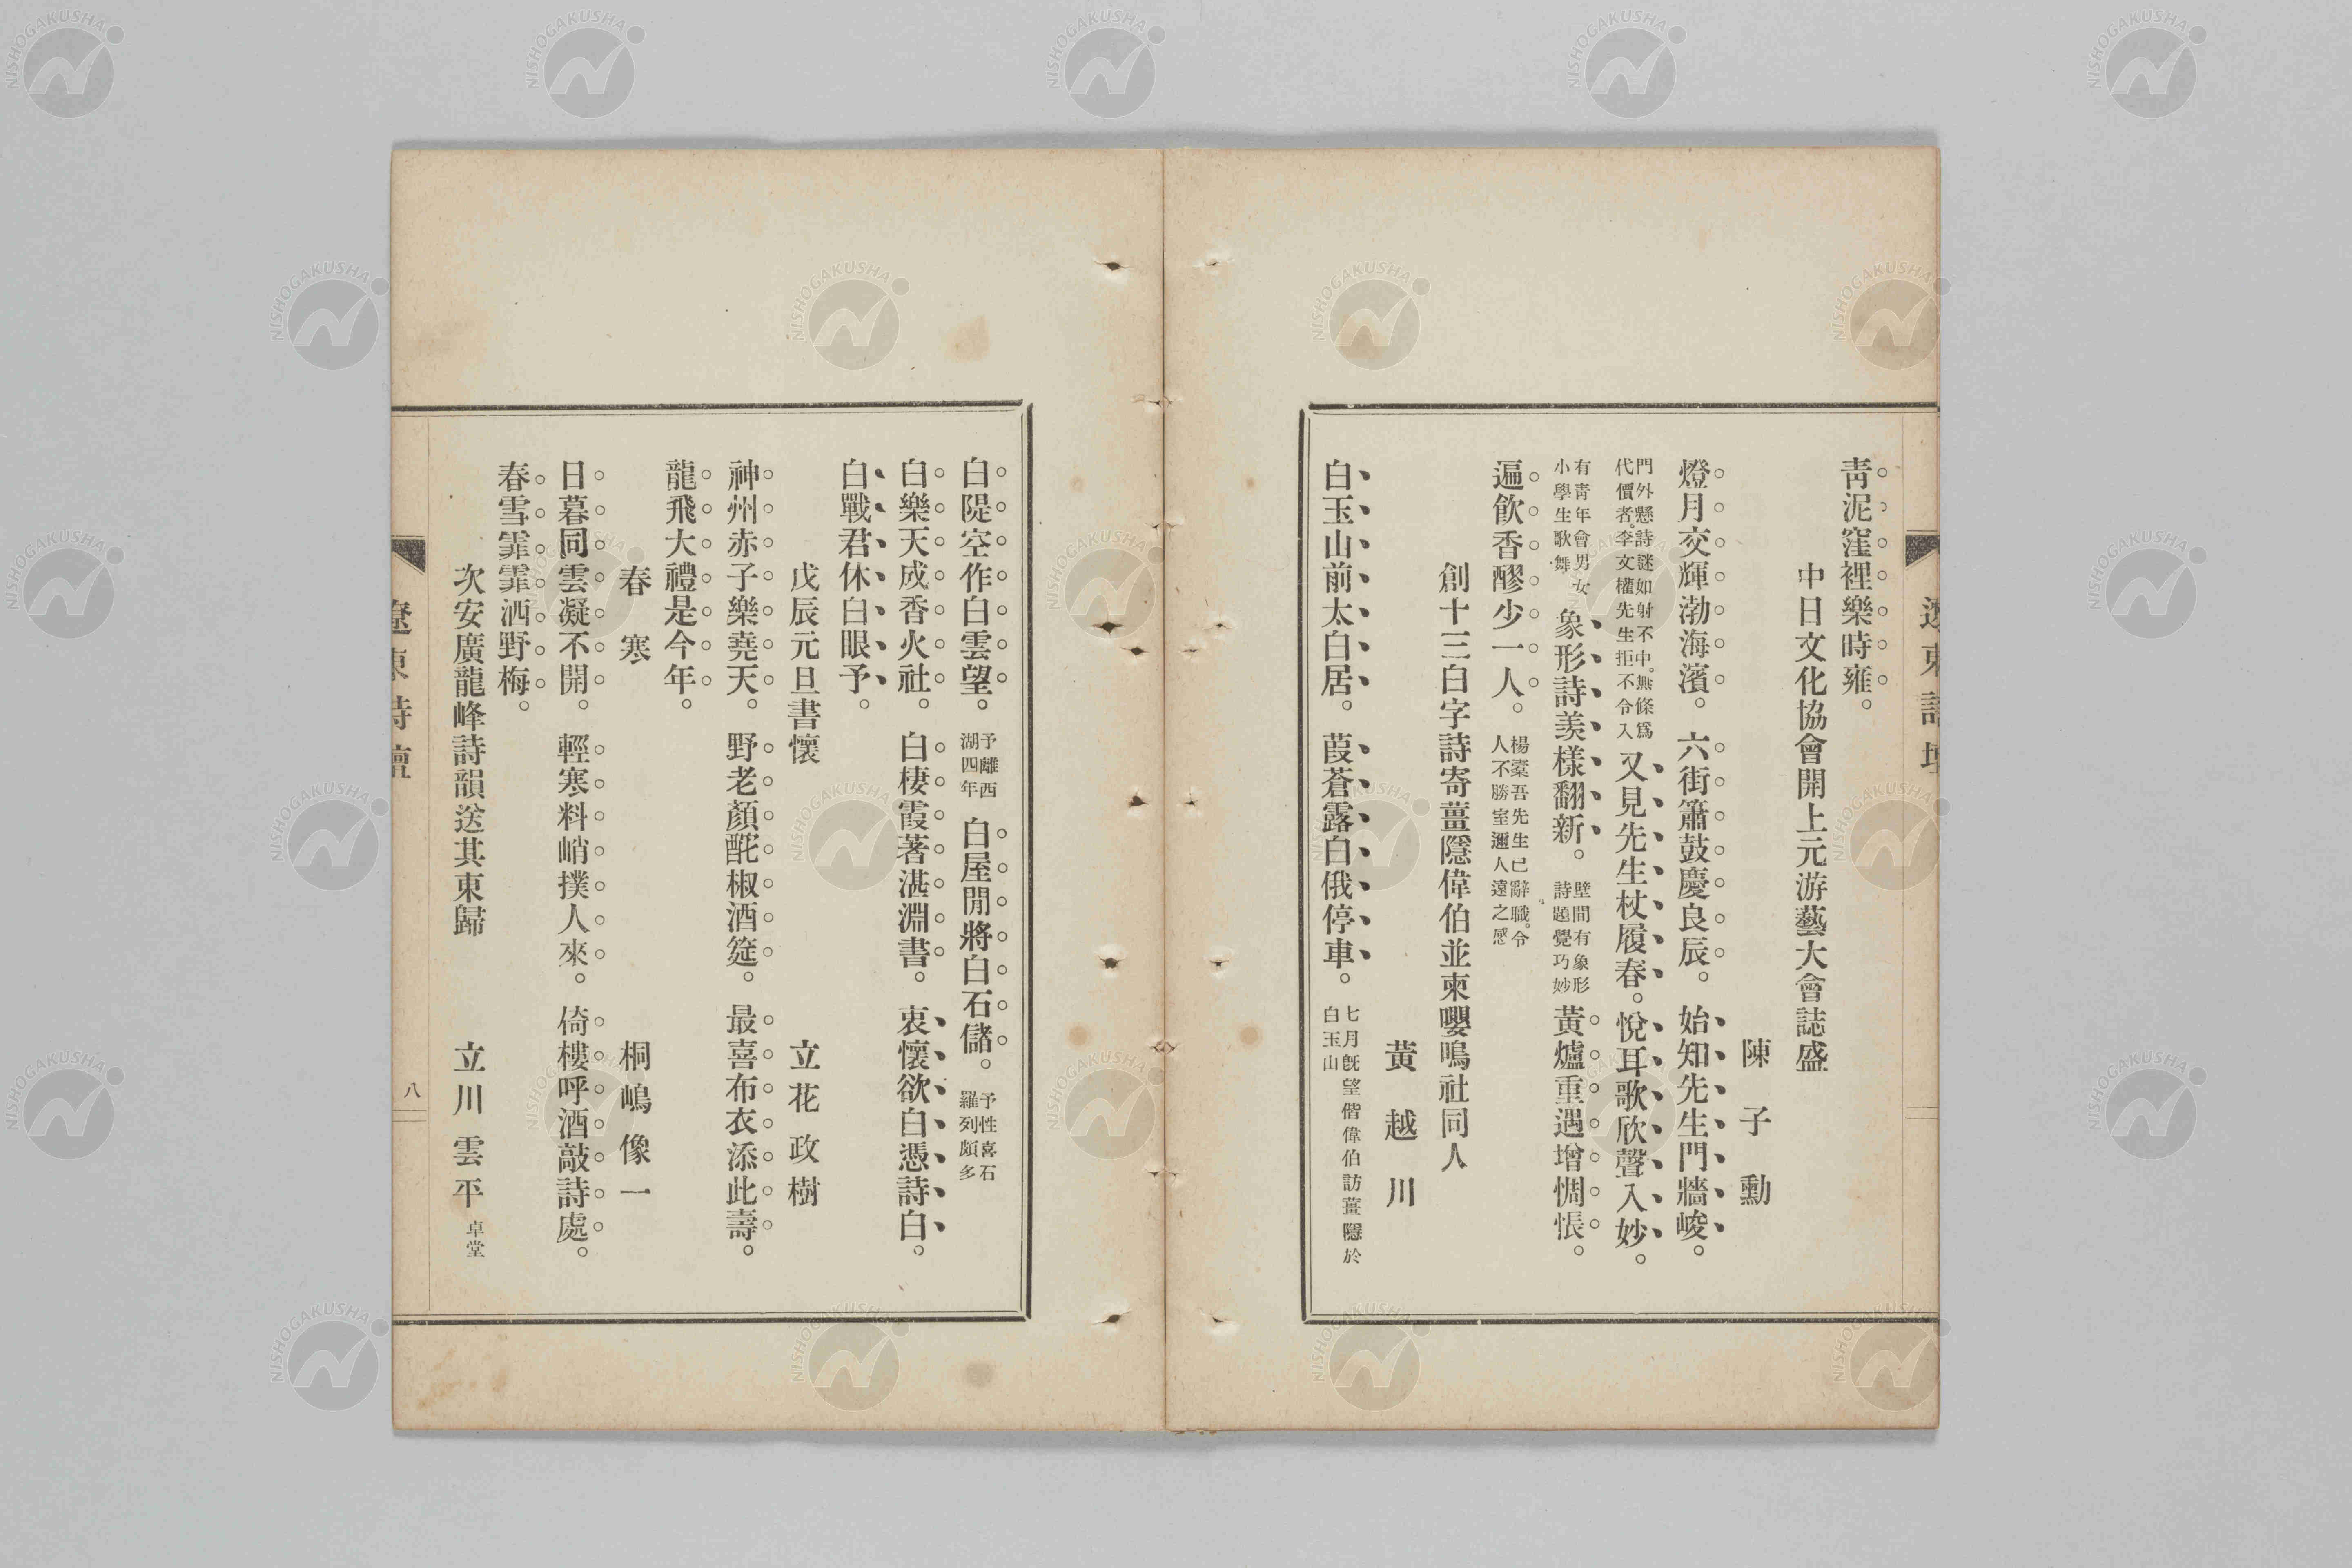 遼東詩壇
青泥窪裡樂時雍。
中日文化協會開上元游藝大會誌盛
陳子勳
燈月交輝渤海濱。六街簫鼓慶良辰。始知先生門牆峻。
門外懸詩謎如射不中。無條爲
代價者。李文權先生拒不令入
又見先生杖履春。悅耳歌欣聲入妙。
有青年會男女
小學生歌舞
象形詩羨樣翻新。
壁間有象形
詩題覺巧妙
黃爐重遇增惆悵。
遍飲香醪少一人。
楊槖吾先生已辭職。令
人不勝室邇人遠之感
創十三白字詩寄薑隱偉伯並柬嚶鳴社同人
黃越川
白玉山前太白居。葭蒼露白俄停車。
七月旣望偕偉伯訪薑隱於
白玉山
白隄空作白雲望。
予離西
湖四年
白屋閒將白石儲。
予性喜石
羅列頗多
白樂天成香火社。白棲霞著湛淵書。衷懷欲白憑詩白。
白戰君休白眼予。
戊辰元旦書懷
立花政樹
神州赤子樂堯天。野老顏酡椒酒筵。最喜布衣添此壽。
龍飛大禮是今年。
春寒
桐嶋像一
日暮同雲凝不開。輕寒料峭撲人來。倚樓呼酒敲詩處。
春雪霏霏洒野梅。
次安廣龍峰詩韻送其東歸
立川雲平 卓堂
遼東詩壇
八
NISHOGAKUSHA